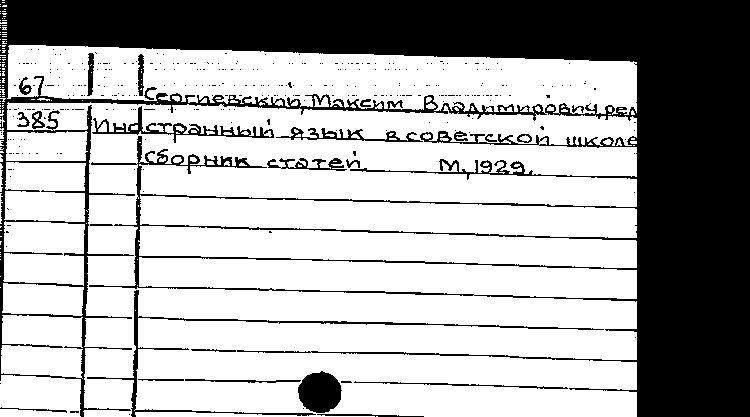 67 Сергиевский, Максим Владимирович, ред
385 Иностранный язык в советской школе
Сборник статей М., 1929.